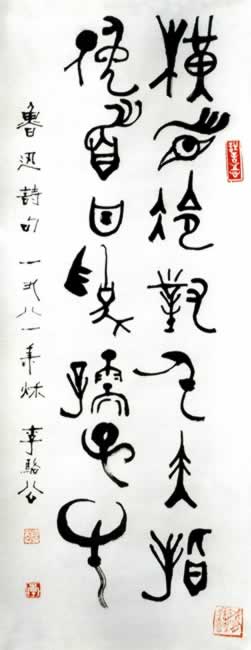 橫眉冷對千夫指
俛首甘為孺子牛
魯迅詩句 一九八一年秋 李駱公